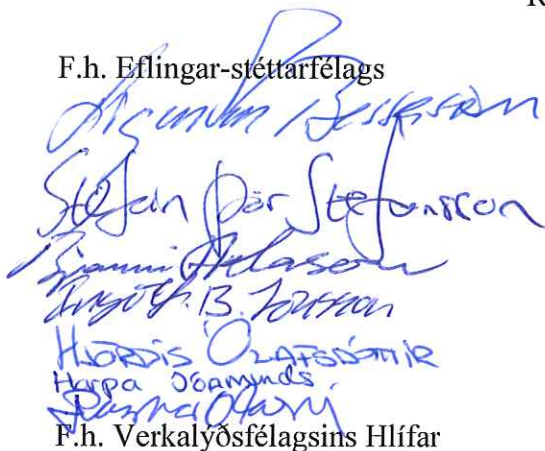 R
F.h. Eflingar-stéttarfélags
Sigurður Bessason
Stefán Þór Stefánsson
Bjarni Atlason
Ingólfur B. Jónsson
HJÖRDÍS ÓLAFSDÓTTIR
Harpa
Ragnar Ólason
F.h. Verkalýðsfélagsins Hlífar